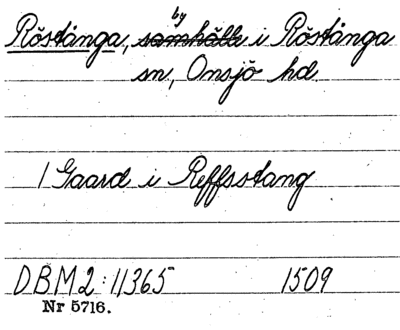 Röstånga, by samhälle i Röstånga
sn, Onsjö hd.
1 Gaard i Reffsstang
DBM2:11365 1509
Nr 5716.